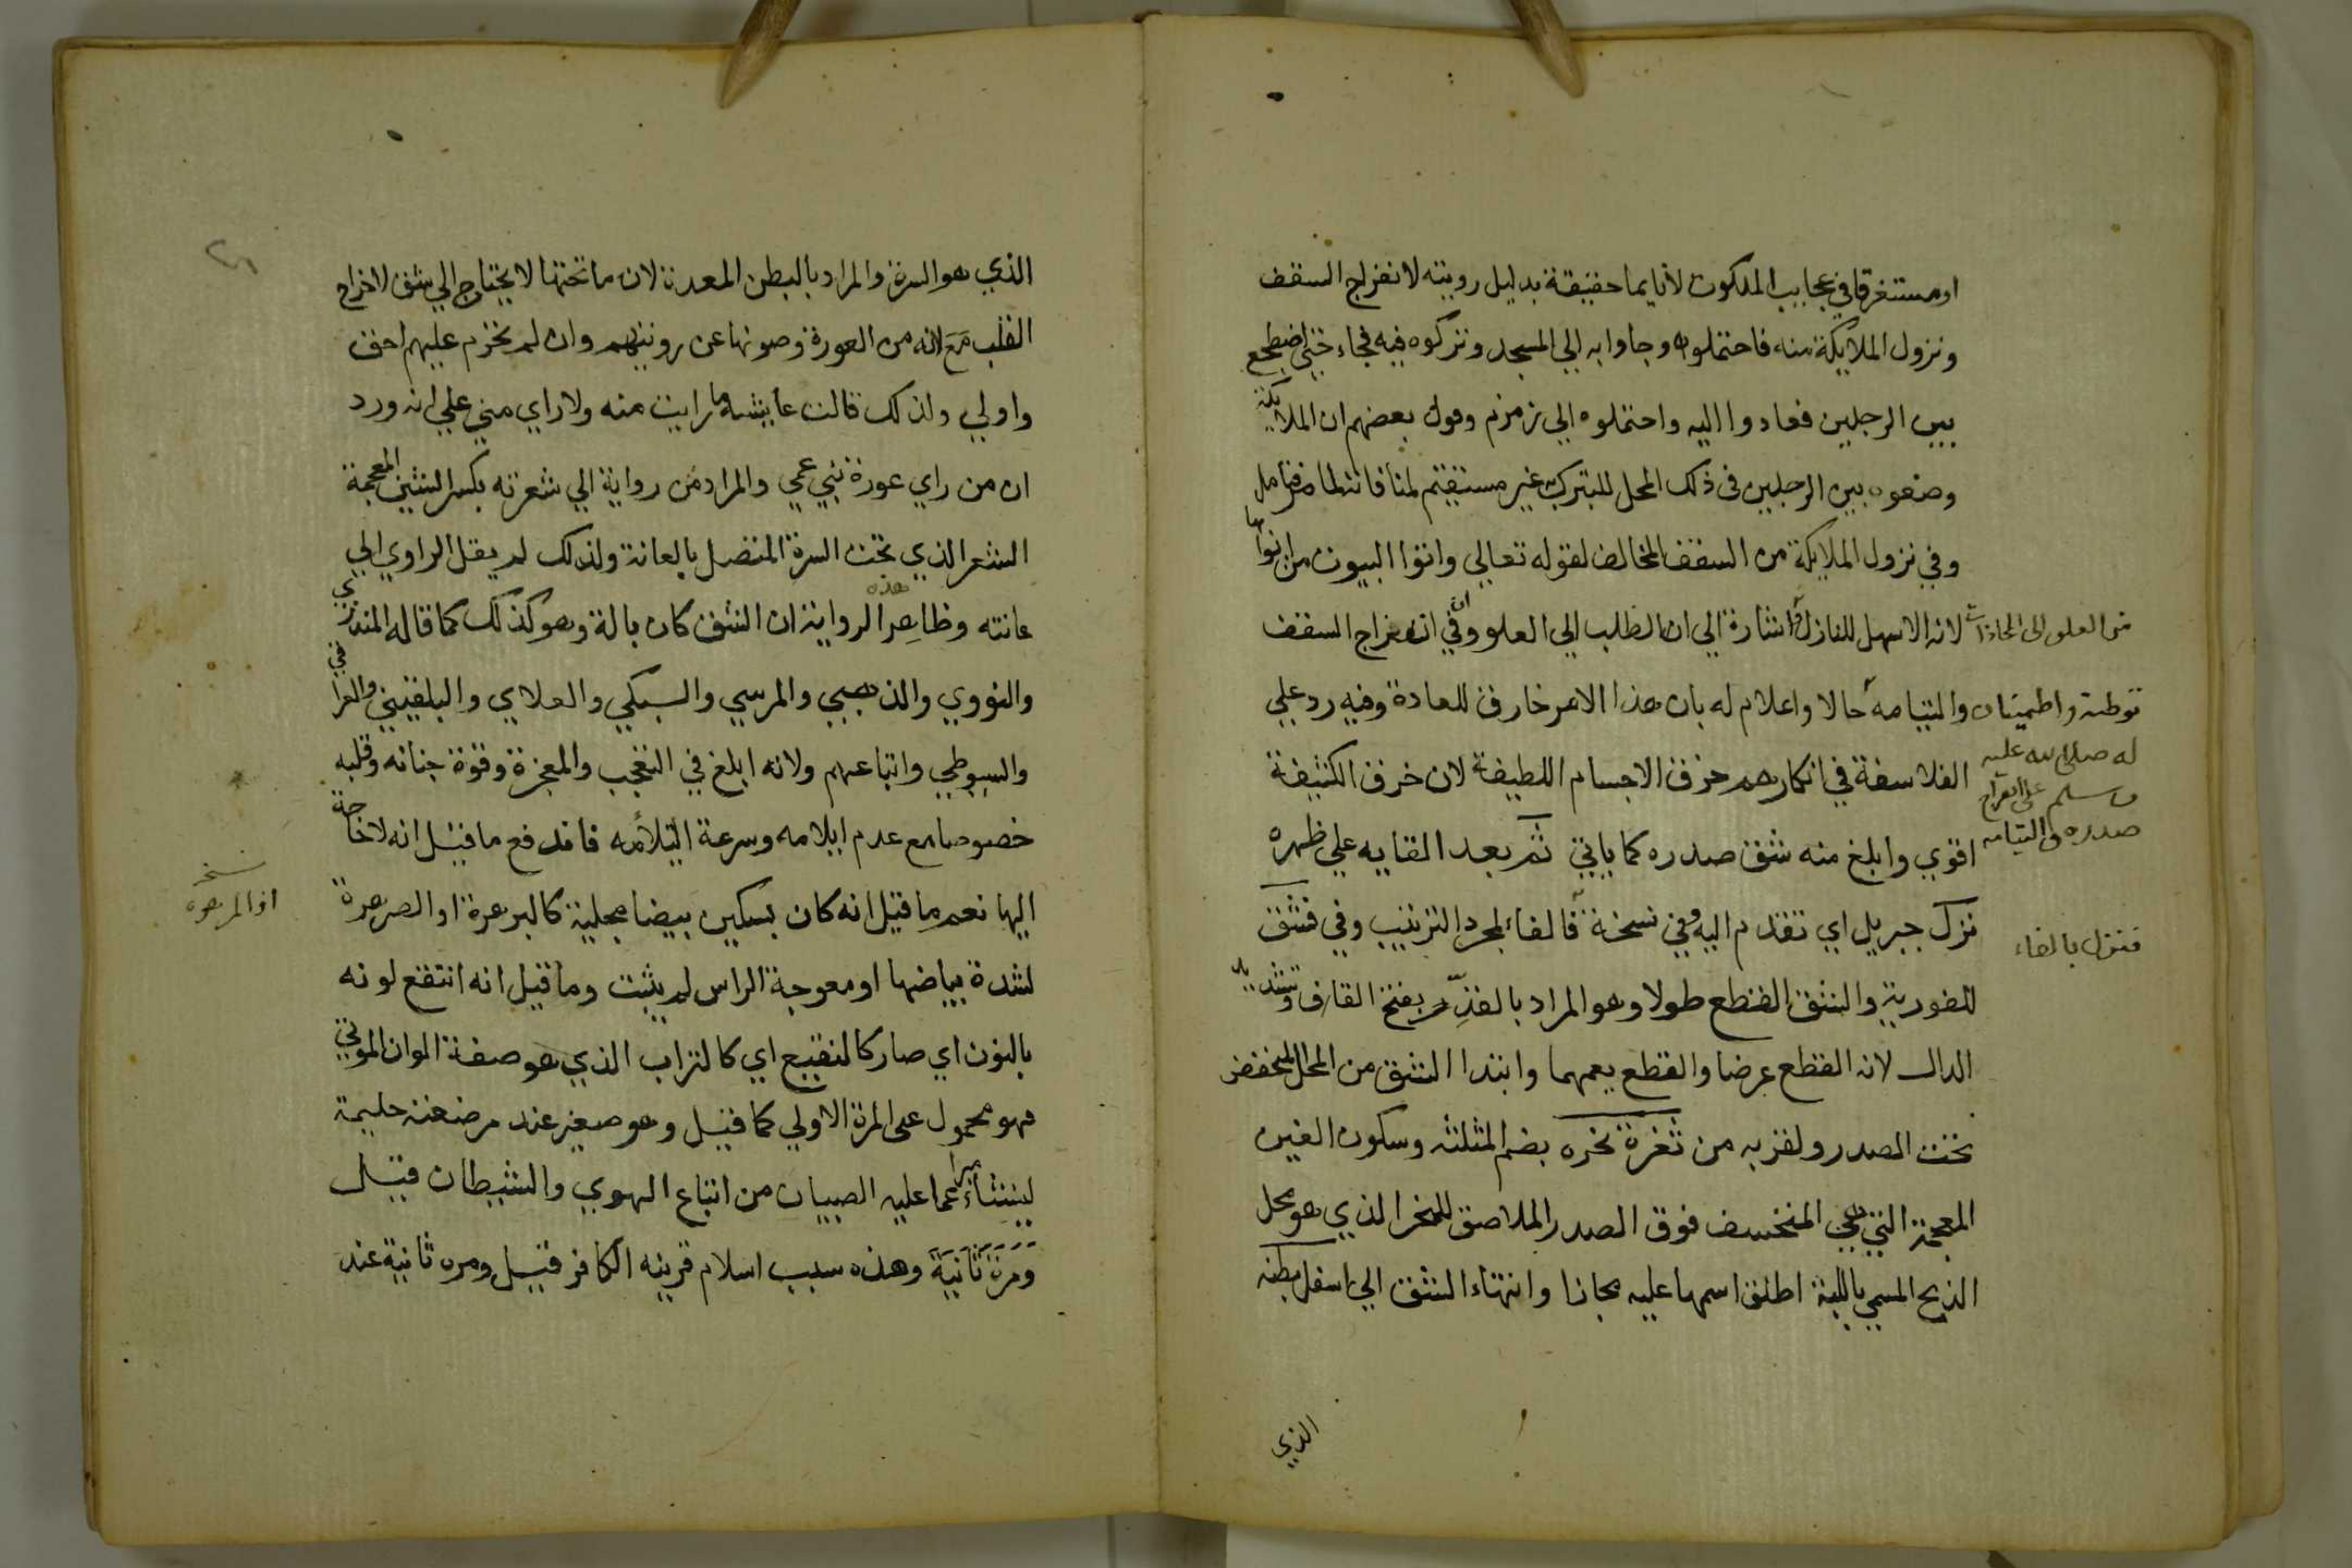 او مستغرقا في عجايب الملكوت لا نايما حقيقة بدليل رويته لانفراج السقف
ونزول الملايكة منه فاحتملوه وجاوا به الي المسجد وتركوه فيه فجاء حتي اضطجع
بين الرجلين فعادوا اليه واحتملوه الي زمزم وقول بعضهم ان الملايكة
وضعوه بين الرجلين في ذلك المحل للتبرك به غير مستقيم لمنافاته لما مر فتامل
وفي نزول الملايكة من السقف المخالف لقوله تعالي واتوا البيوت من ابوابها
لانه الاسهل للنازل واشارة الي ان الطلب الي العلو وفي ان انفراج السقف
من العلو الى المحاذات
توطئة واطمينان والتيامه حالا واعلام له بان هذا الامر خارق للعادة وفيه رد علي
له صلى الله عليه
وسلم على انفراج
صدره والتيامه
الفلاسفة في انكارهم خرق الاجسام اللطيفة لان خرق الكثيفة
اقوي وابلغ منه شق صدره كما ياتي ثم بعد القايه علي ظهره
نزل جبريل اي تقدم اليه وفي نسخة فالفاء لمجرد الترتيب وفي فشق
فنزل بالفاء
للفورية والشق القطع طولا وهو المراد بالقدّ بفتح القاف وتشديد
الدال لانه القطع عرضا والقطع يعمهما وابتدا الشق من المحل المنخفض
تحت الصدر ولقربه من ثغرة نحره بضم المثلثه وسكون الغين
المعجمة التي هي المنخسف فوق الصدر الملاصق للنحر الذي هو محل
الذبح المسمي باللبة اطلق اسمها عليه مجازا وانتهاء الشق الي اسفل بطنه
الذي
الذي هو السرة والمراد بالبطن المعدة لان ما تحتها لا يحتاج الي شق لاخراج
القلب مع لانه من العورة وصونها عن رويتهم وان لم تحرم عليهم احق
واولي ولذلك قالت عايشه ما رايت منه ولا راي مني علي انه ورد
ان من راي عورة نبي عمي والمراد من رواية الي شعرته بكسر الشين المعجمة
الشعر الذي تحت السرة المتصل بالعانة ولذلك لم يقل الراوي الي
عانته وظاهر هذه الرواية ان الشق كان بالة وهو كذلك كما قاله المنذري
والنووي والذهبي والمرسي والسبكي والعلاي والبلقيني والعراقي
والسيوطي واتباعهم ولانه ابلغ في التعجب والمعجزة وقوة جنانه وقلبه
خصوصا مع عدم ايلامه وسرعة التلامه فاندفع ما قيل انه لا حاجة
اليها نعم ما قيل انه كان بسكين بيضا مجلية كالبرهرة او الصرهرة
نسخه
او المرهره
لشدة بياضها او معوجة الراس لم يثبت وما قيل انه انتقع لونه
بالنون اي صار كالنقيع اي كالتراب الذي هو صفة الوان الموتي
فهو محمول على المرة الاولي كما قيل وهو صغير عند مرضعته حليمة
لينشا مبرا عما عليه الصبيان من اتباع الهوي والشيطان قيل
ومرة ثانية وهذه سبب اسلام قرينه الكافر قيل ومره ثانية عند